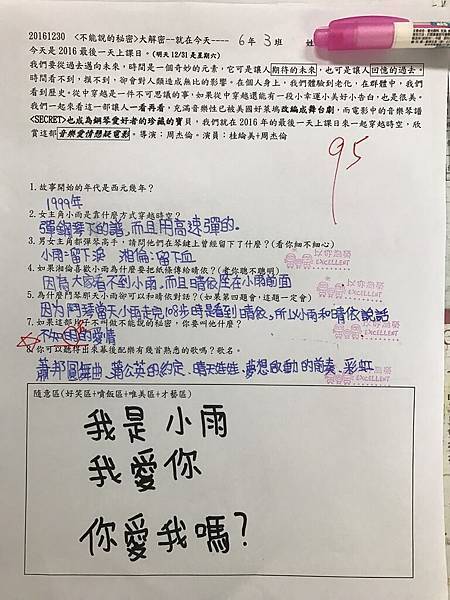 20161230 <不能說的秘密>大解密--就在今天---- 6年3班 姓
今天是2016最後一天上課日。(明天12/31是星期六)
我們要從過去邁向未來，時間是一個奇妙的元素，它可是讓人期待的未來，也可是讓人回憶的過去。
時間看不到，摸不到，卻會對人類造成無比的影響。在個人身上，我們體驗到老化，在群體中，我們
看到歷史。從中穿越是一件不可思議的事，如果從中穿越還能有一段小幸運小美好小告白，也是很美。
我們一起來看這一部讓人一看再看，充滿音樂性已被美國好萊塢改編成舞台劇，而電影中的音樂琴譜
<SECRET>也成為鋼琴愛好者的珍藏的寶貝，我們就在2016年的最後一天上課日來一起穿越時空，欣
賞這部音樂愛情懸疑電影。導演：周杰倫。演員：桂綸美+周杰倫
95
1.故事開始的年代是西元幾年？
1999年
2.女主角小雨是靠什麼方式穿越時空？
彈鋼琴下的譜，而且用高速彈的。
3.男女主角都彈琴高手，請問他們在琴鍵上曾經留下了什麼？(看你細不細心)
小雨：留下淚 湘倫：留下血
4.如果湘倫喜歡小雨為什麼要把紙條傳給晴依？(考你聰不聰明)
因為大家看不到小雨，而且晴依座在小雨前面
5.為什麼鬥琴那天小雨卻可以和晴依對話？(如果第四題會，這題一定會)
因為鬥琴當天小雨走完108步時是看到晴依，所以小雨和晴依說話
7.如果這部片子不叫做不能說的秘密，你要叫他什麼？
的愛情
你可以聽得出來幕後配樂有幾首熟悉的歌嗎？歌名。
蕭邦圓舞曲、蒲公英的約定、晴天娃娃、夢想啟動的前奏、彩虹
以你為榮
EXCELLENT
以你為榮
EXCELLENT
以你為榮
EXCELLENT
隨意區(好笑區+噴飯區+唯美區+才藝區)
我是小雨
我愛你
你愛我嗎?